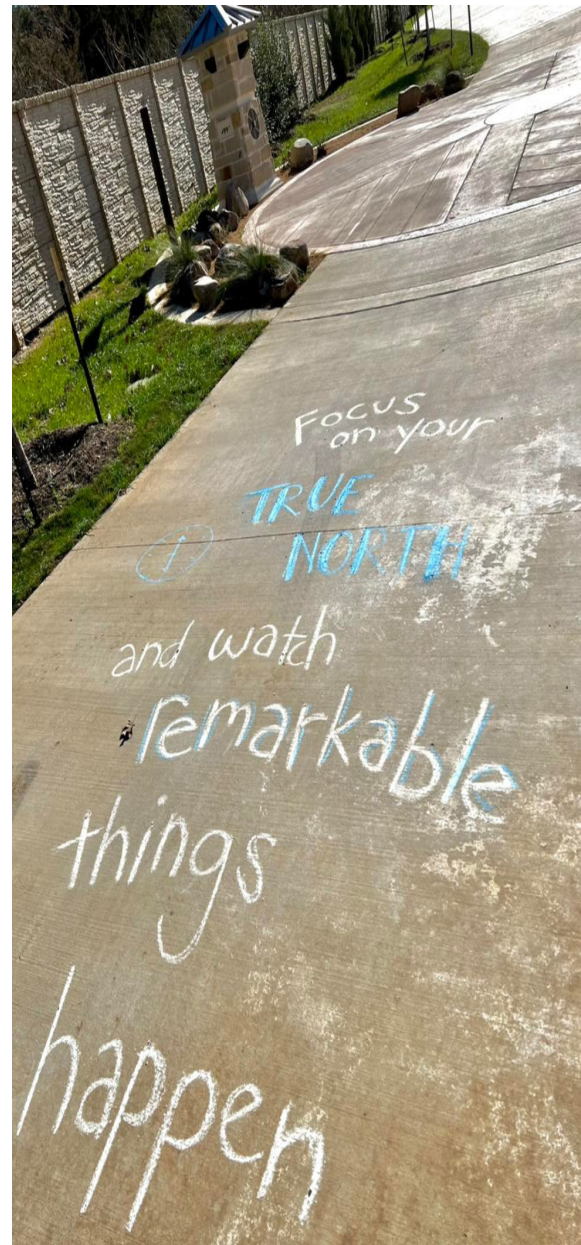 Focus
on your
TRUE
NORTH
and watch
remarkable
things
happen